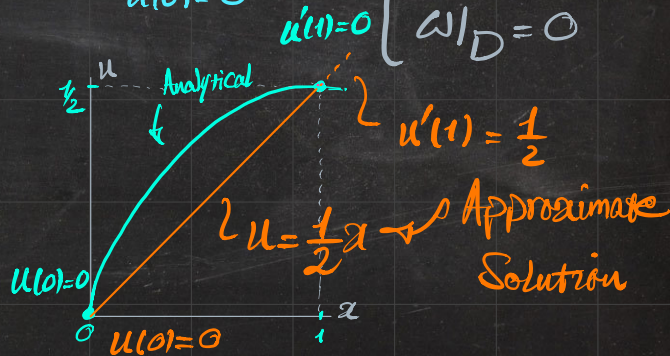 u'(1)=0
ω|_D = 0
u
1/2
Analytical
u'(1) = 1/2
u = 1/2 x
Approximate
Solution
u(0)=0
x
0
1
u(0)=0